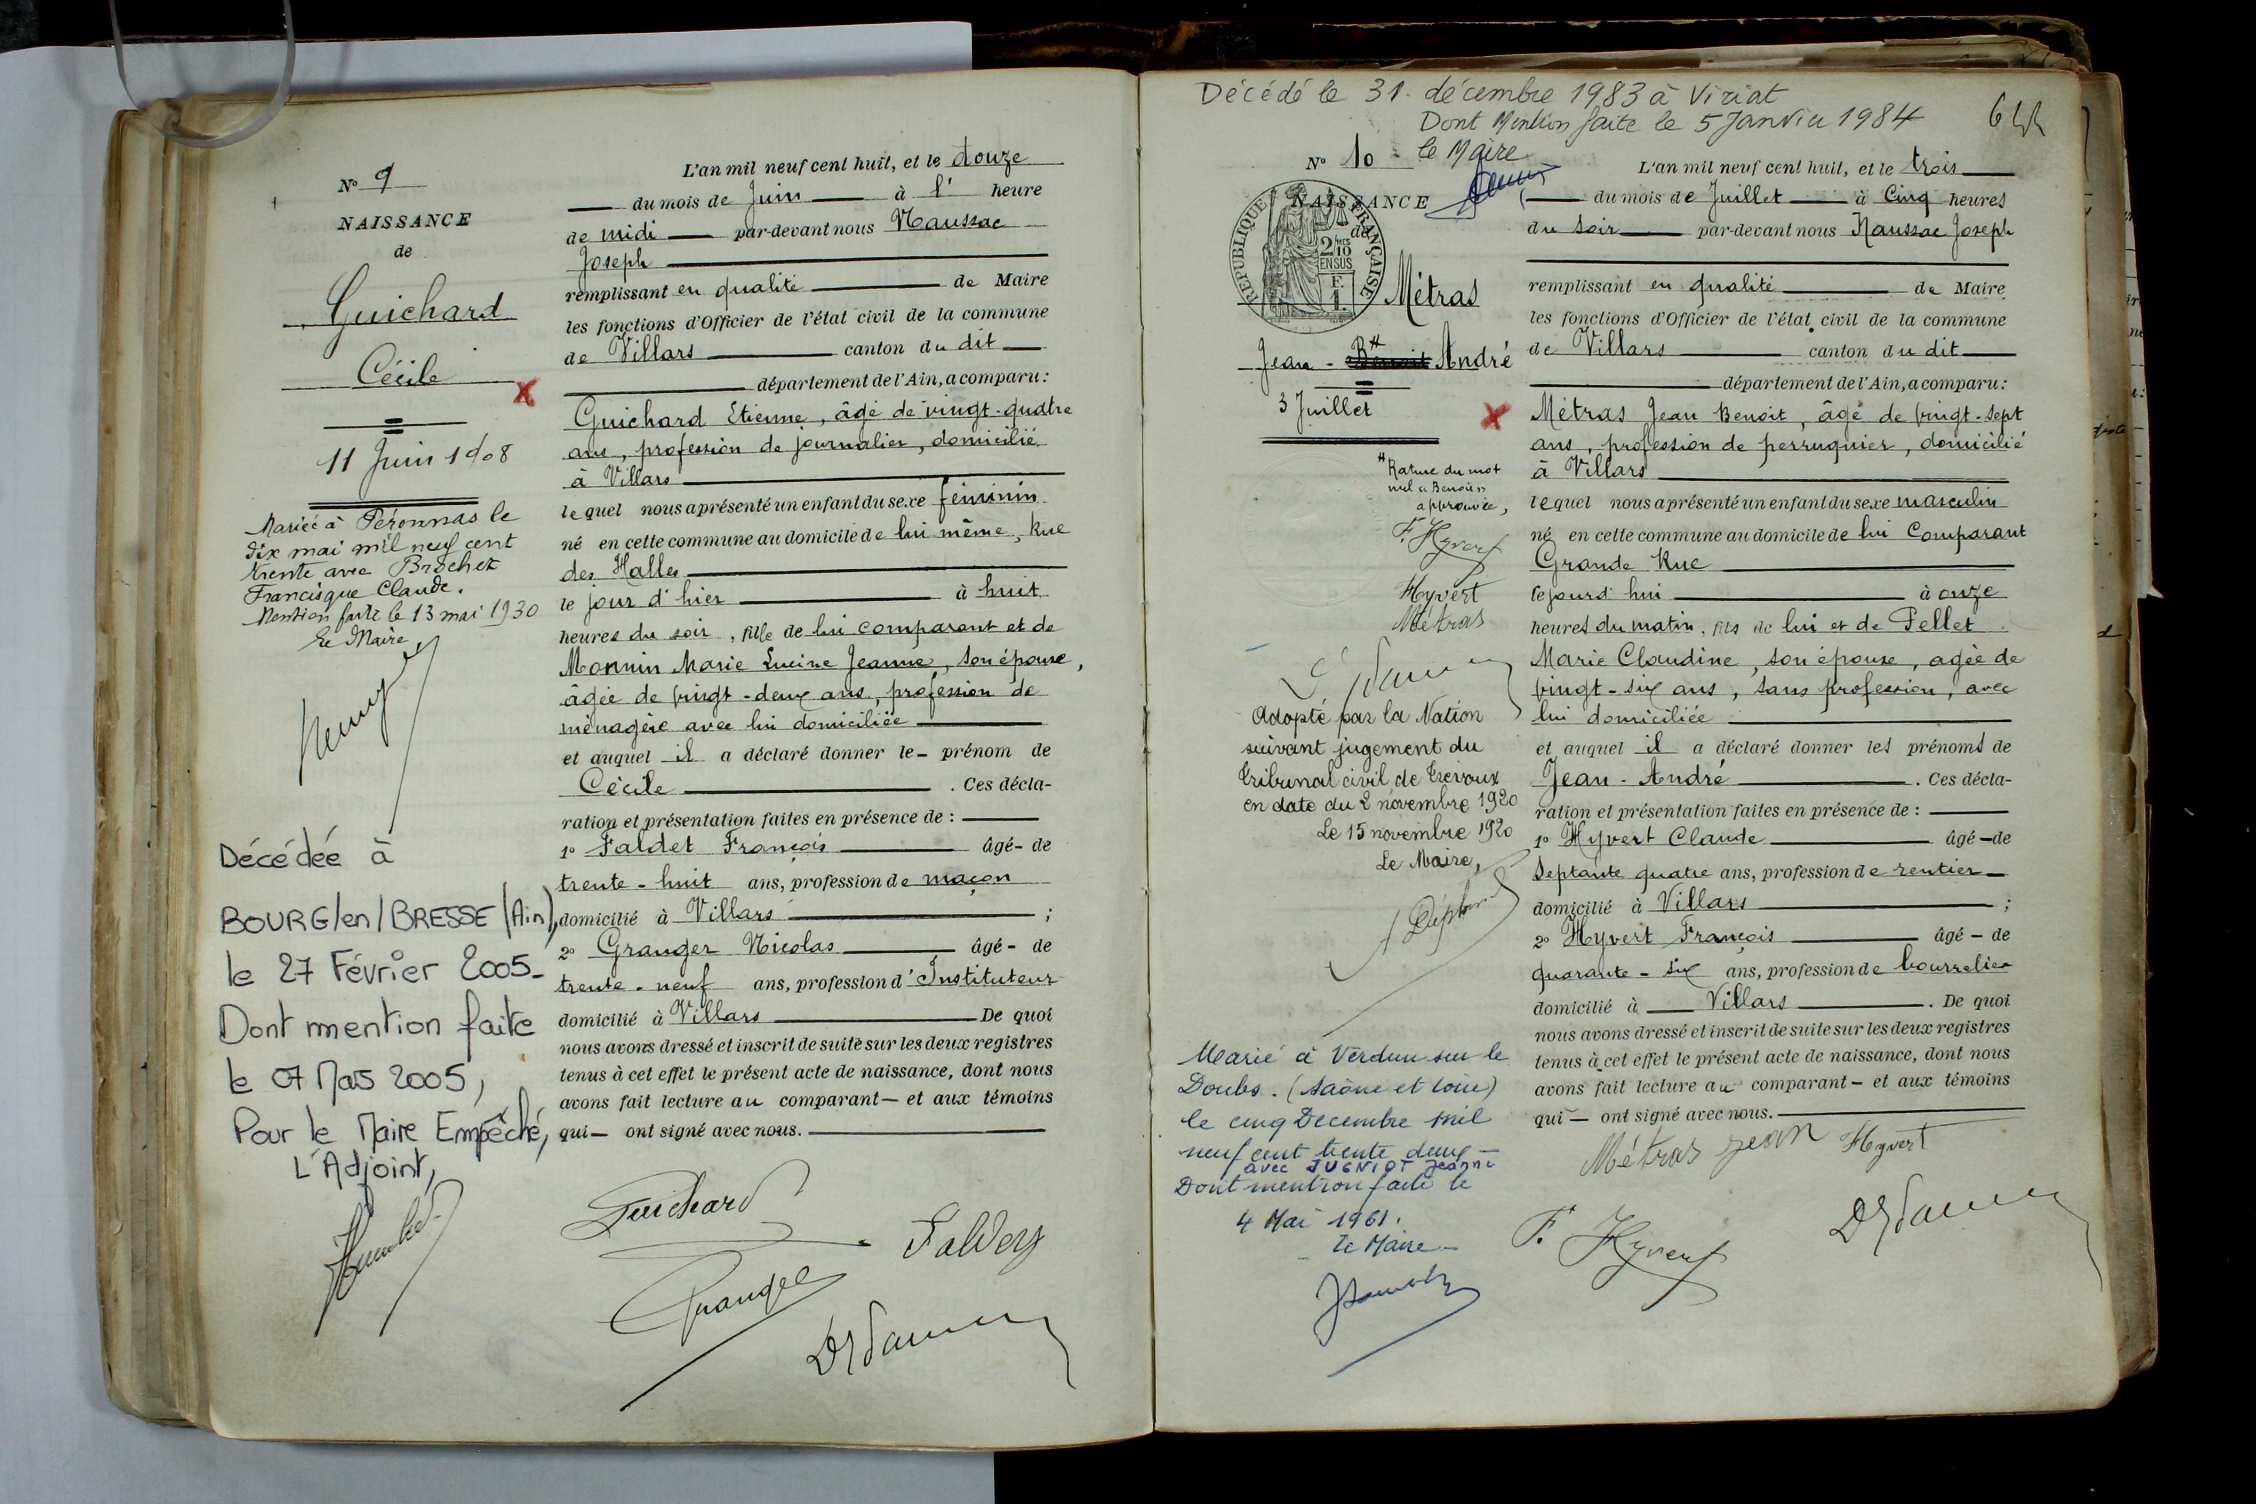 N° 9
NAISSANCE
de
Guichard
Cécile
11 Juin 1908
Mariée à Péronnas le
dix mai mil neuf cent
trente avec Brochet
Francisque Claude.
Mention faite le 13 mai 1930
Le Maire
Décédée à
BOURG/en/BRESSE (Ain),
le 27 Février 2005-
Dont mention faite
le 07 Mars 2005,
Pour le Maire Empêché,
L'Adjoint,
L'an mil neuf cent huit, et le douze
du mois de Juin à l' heure
de midi par-devant nous Naussac
Joseph
remplissant en qualité de Maire
les fonctions d'Officier de l'état civil de la commune
de Villars canton du dit
département de l'Ain, a comparu:
Guichard Etienne, âgé de vingt-quatre
ans, profession de journalier, domicilié
à Villars
lequel nous a présenté un enfant du sexe féminin
né en cette commune au domicile de lui même, Rue
des Halles
le jour d'hier à huit
heures du soir, fille de lui comparant et de
Monnin Marie Lucine Jeanne, son épouse,
âgée de vingt-deux ans, profession de
ménagère avec lui domiciliée
et auquel il a déclaré donner le- prénom de
Cécile . Ces décla-
ration et présentation faites en présence de :
1° Faldet François âgé- de
trente-huit ans, profession de maçon
domicilié à Villars ;
2° Granger Nicolas âgé- de
trente-neuf ans, profession d'Instituteur
domicilié à Villars De quoi
nous avons dressé et inscrit de suite sur les deux registres
tenus à cet effet le présent acte de naissance, dont nous
avons fait lecture au comparant- et aux témoins
qui- ont signé avec nous.
Guichard
Faldet
Granger
Décédé le 31 décembre 1983 à Viriat
Dont Mention faite le 5 Janvier 1984
le Maire
N° 10
NAISSANCE
de
RÉPUBLIQUE FRANÇAISE
2/10
EN SUS
F.
1.
Métras
Jean - Benoit André
3 Juillet
Rature du mot
nul "Benoit"
approuvée,
F. Hyvert
Hyvert
Métras
Adopté par la Nation
suivant jugement du
Tribunal civil de Trévoux
en date du 2 novembre 1920
Le 15 novembre 1920
Le Maire,
Marié à Verdun sur le
Doubs. (Saône et Loire)
le cinq Decembre mil
neuf cent trente deux -
avec JUGNIOT Jeanne
Dont mention faite le
4 Mai 1961.
Le Maire
L'an mil neuf cent huit, et le trois
du mois de Juillet à Cinq heures
du soir par-devant nous Naussac Joseph
remplissant en qualité de Maire
les fonctions d'Officier de l'état civil de la commune
de Villars canton du dit
département de l'Ain, a comparu:
Métras Jean Benoit, âgé de vingt-sept
ans, profession de perruquier, domicilié
à Villars
lequel nous a présenté un enfant du sexe masculin
né en cette commune au domicile de lui Comparant
Grande Rue
le jourd'hui à onze
heures du matin, fils de lui et de Pellet
Marie Claudine, son épouse, agée de
vingt-six ans, sans profession, avec
lui domiciliée
et auquel il a déclaré donner les prénoms de
Jean-André . Ces décla-
ration et présentation faites en présence de :
1° Hyvert Claude âgé-de
Septante quatre ans, profession de rentier
domicilié à Villars ;
2° Hyvert François âgé - de
quarante-six ans, profession de bourrelier
domicilié à Villars . De quoi
nous avons dressé et inscrit de suite sur les deux registres
tenus à cet effet le présent acte de naissance, dont nous
avons fait lecture au comparant- et aux témoins
qui- ont signé avec nous.
Métras Jean Hyvert
F. Hyvert